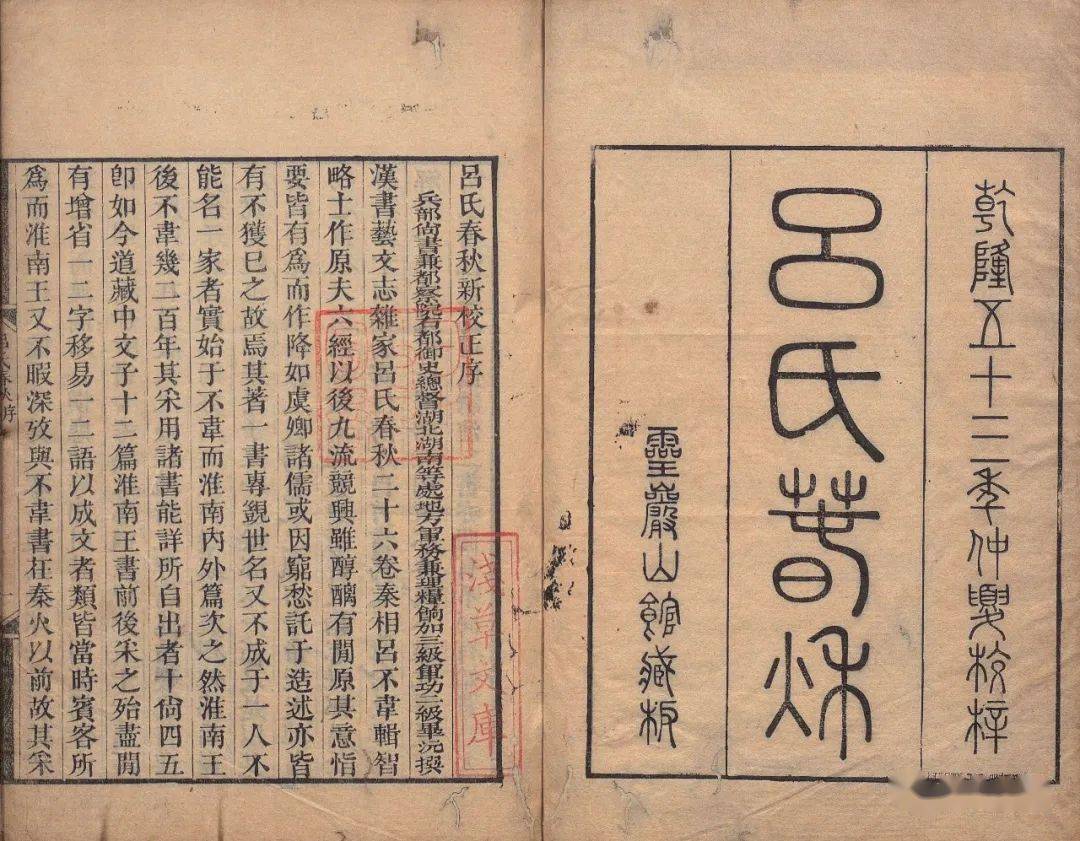 乾隆五十三秊仲夏校梓
呂氏春秋
靈巖山館藏板
呂氏春秋新校正序
兵部尚書兼都察院右都御史總督湖北湖南等處地方軍務兼理糧餉加三級軍功一級畢沅撰
漢書藝文志雜家呂氏春秋二十六卷秦相呂不韋輯智
略士作原夫六經以後九流競興雖醇醨有閒原其意恉
要皆有爲而作降如虞卿諸儒或因窮愁託于造述亦皆
有不獲巳之故焉其著一書專覬世名又不成于一人不
能名一家者實始于不韋而淮南內外篇次之然淮南王
後不韋幾二百年其采用諸書能詳所自出者十尙四五
卽如今道藏中文子十二篇淮南王書前後采之殆盡閒
有增省一二字移易一二語以成文者類皆當時賓客所
爲而淮南王又不暇深攷與不韋書在秦火以前故其采
淺草文庫